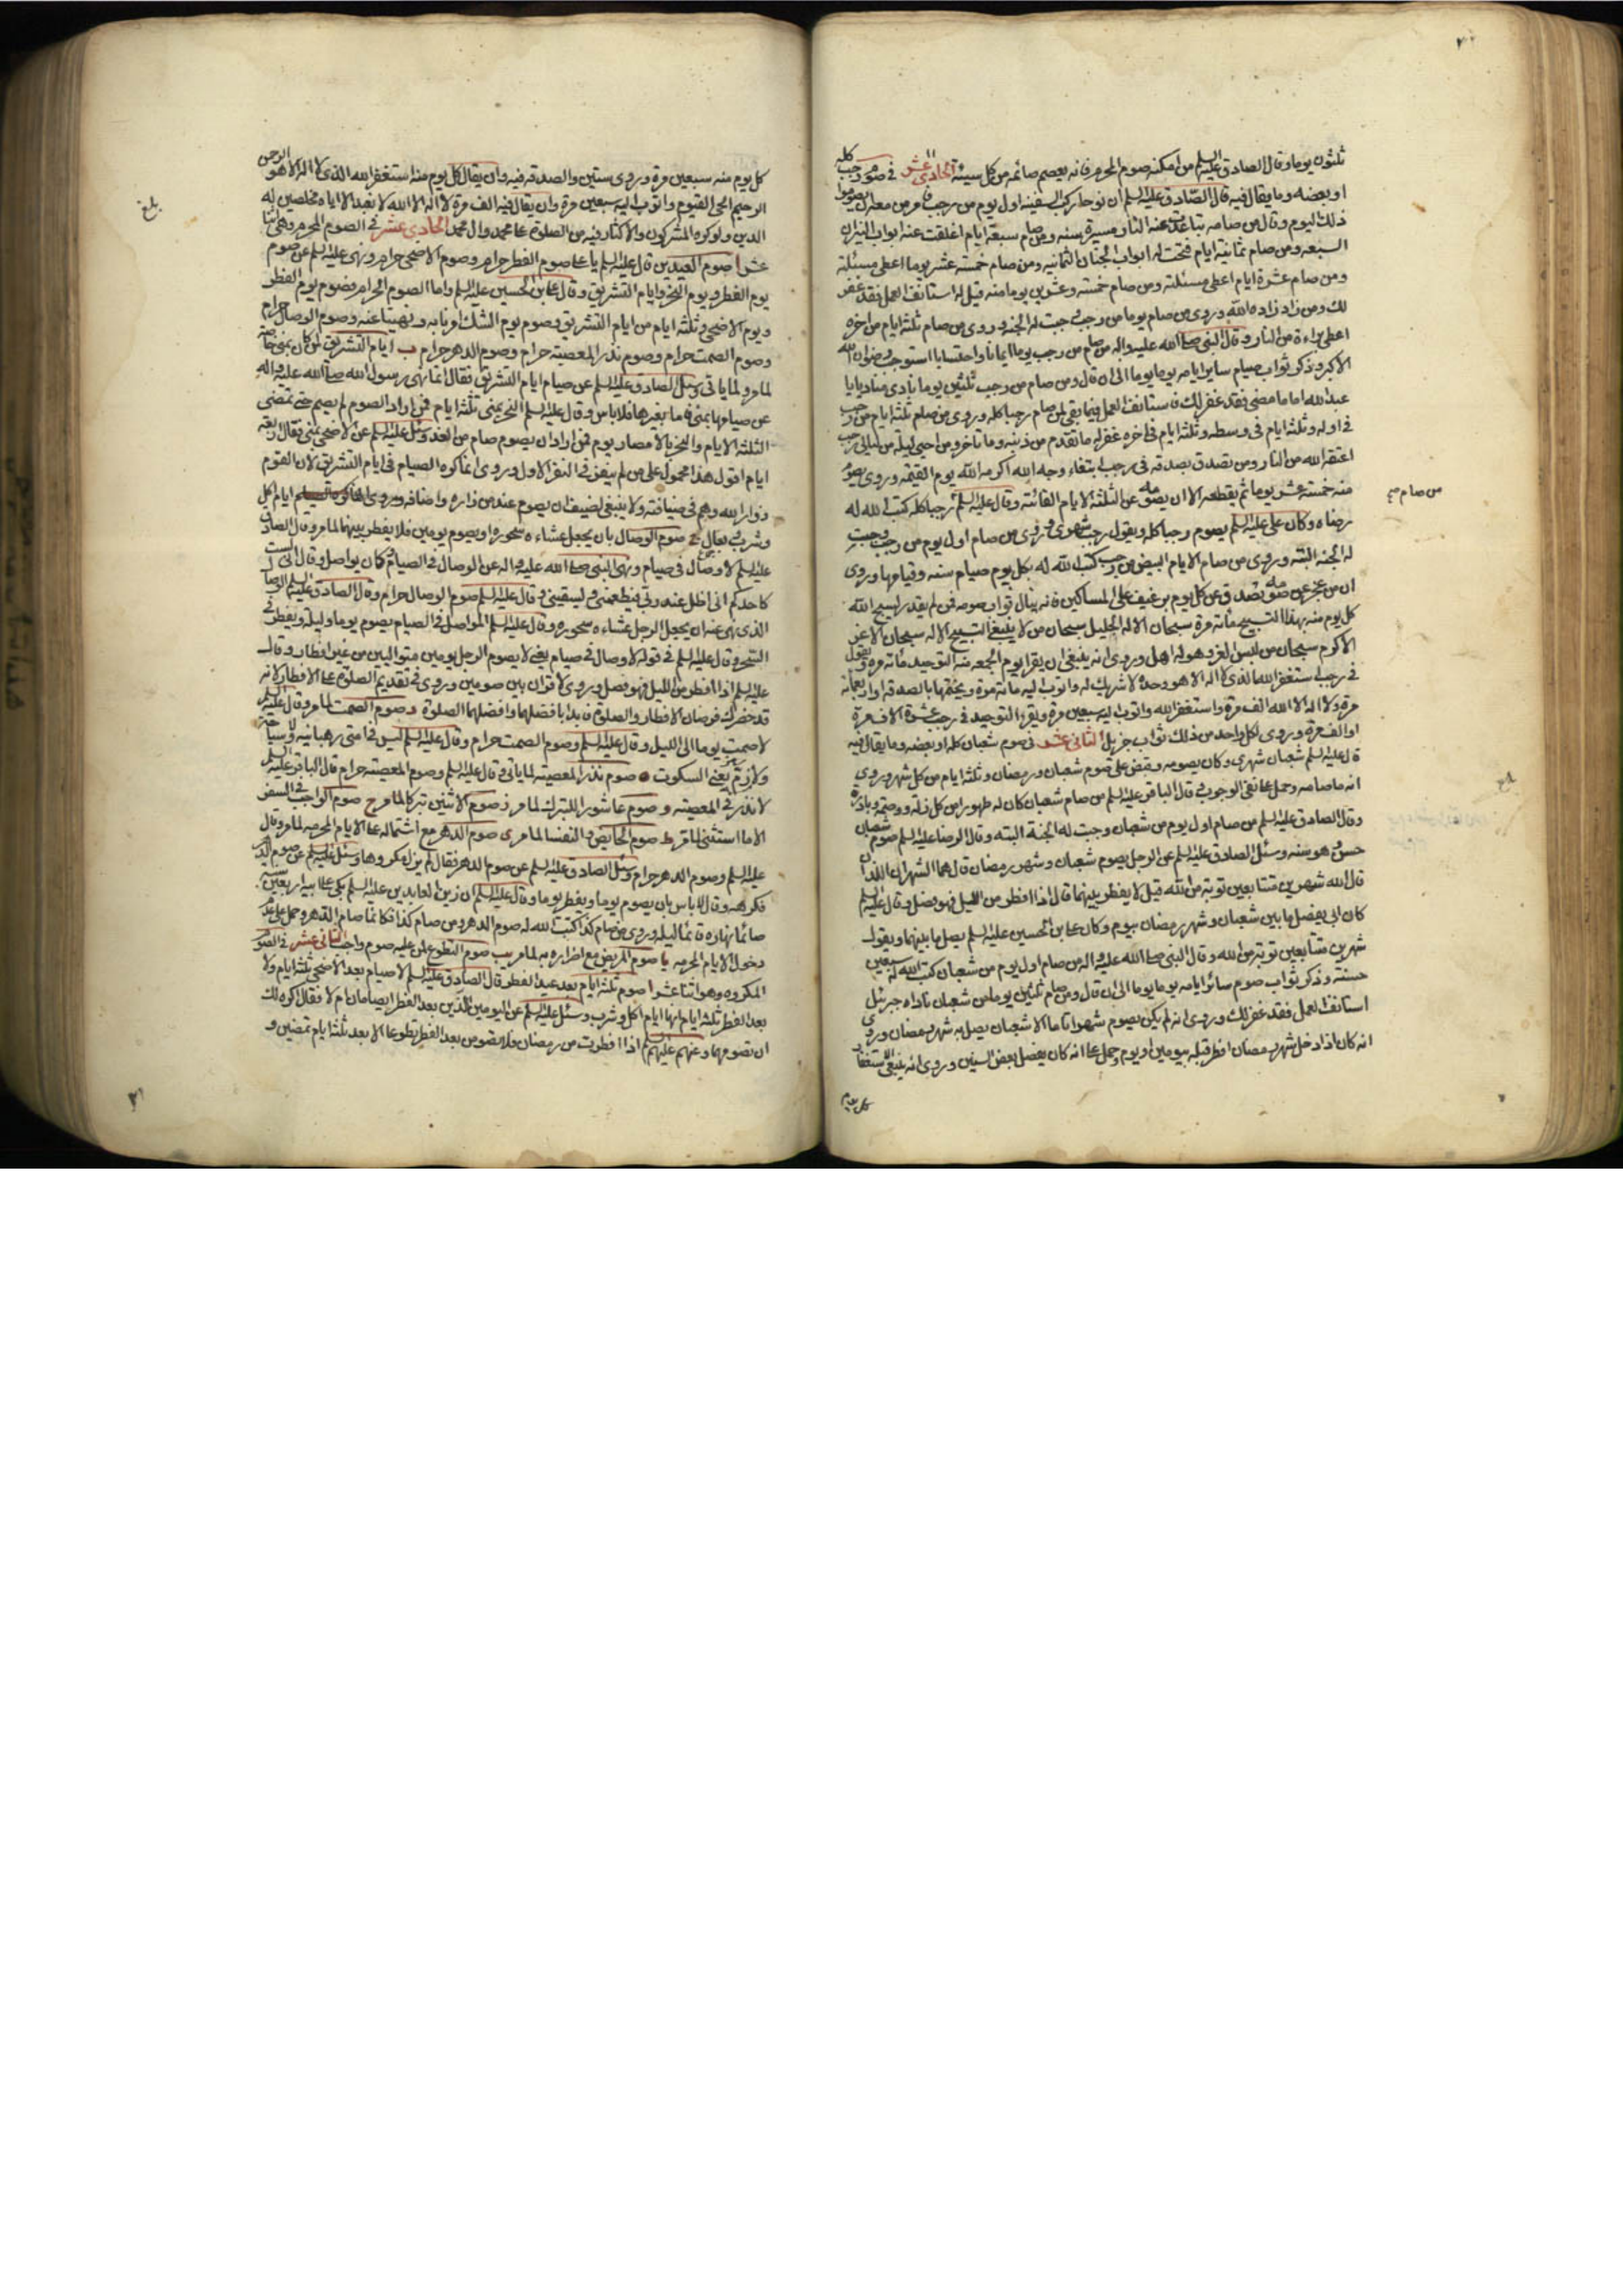 ثلثون يوما وقال الصادق عليه السلم من امكنه صوم المحرم فانه يعصم صائمه من كل سيئة الحادي عشر في صوم رجب كله
او بعضه وما يقال فيه قال الصادق عليه السلم ان نوحا ركب السفينة اول يوم من رجب فامر من معه ان يصوموا
ذلك اليوم وقال من صامه تباعدت عنه النار مسيرة سنه ومن صام سبعة ايام اغلقت عنه ابواب النيران
السبعه ومن صام ثمانية ايام فتحت له ابواب الجنان الثمانيه ومن صام خمسة عشر يوما اعطي مسئلته
ومن صام عشرة ايام اعطي مسئلته ومن صام خمسة وعشرين يوما منه قيل له استانف العمل فقد غفر
لك ومن زاد زاده الله وروي من صام يوما من رجب وجبت له الجنه وروي من صام ثلثة ايام من اخره
اعطي براءة من النار وقال النبي صلى الله عليه واله من صام من رجب يوما ايمانا واحتسابا استوجب رضوان الله
الاكبر وذكر ثواب صيام ساير ايامه يوما يوما الى ان قال ومن صام من رجب ثلثين يوما نادى مناد يا
عبد الله اما ما مضى فقد غفر لك فاستانف العمل فيما بقي لمن صام رجبا كله وروي من صام ثلثة ايام من رجب
في اوله وثلثة ايام في وسطه وثلثة ايام في اخره غفر له ما تقدم من ذنبه وما تاخر ومن احيى ليلة من ليالي رجب
اعتقه الله من النار ومن تصدق بصدقه في رجب ابتغاء وجه الله اكرمه الله يوم القيمه وروي يصوم
منه خمسة عشر يوما ثم يقطعه الا ان يصومه عن الثلثة الايام الفائته وقال عليه السلم رجبا كله كتب الله له
من صام صح
رضاه وكان علي عليه السلم يصوم رجبا كله ويقول رجب شهري وروي من صام اول يوم من رجب وجبت
له الجنه البته وروي من صام الايام البيض من رجب كتب الله له بكل يوم صيام سنه وقيامها وروي
ان من عجز عن صومه تصدق عن كل يوم برغيف على المساكين فانه ينال ثواب صومه فمن لم يقدر يسبح الله
كل يوم منه بهذا التسبيح مائة مرة سبحان الاله الجليل سبحان من لا ينبغي التسبيح الا له سبحان الاعز
الاكرم سبحان من لبس العز وهو له اهل وروي انه ينبغي ان يقرا يوم الجمعه منه التوحيد مائة مره ويقول
في رجب استغفر الله الذي لا اله الا هو وحده لا شريك له واتوب اليه مائة مرة ويختمها بالصدقة او اربعمائة
مرة ولا اله الا الله الف مرة واستغفر الله واتوب اليه سبعين مرة ويقرء التوحيد في رجب عشرة الاف مرة
او الف مرة وروي لكل واحد من ذلك ثواب جزيل الثاني عشر في صوم شعبان كله او بعضه وما يقال فيه
قال عليه السلم شعبان شهري وكان يصومه وقبض على صوم شعبان ورمضان وثلثة ايام من كل شهر وروي
انه ما صامه وحمل على نفي الوجوب قال الباقر عليه السلم من صام شعبان كان له طهورا من كل زلة ووصمة وبادرة
وقال الصادق عليه السلم من صام اول يوم من شعبان وجبت له الجنة البته وقال الرضا عليه السلم صوم شعبان
حسن وهو سنه وسئل الصادق عليه السلم عن الرجل يصوم شعبان وشهر رمضان قال هما الشهران اللذان
قال الله شهرين متتابعين توبة من الله قيل لا يفطر بينهما قال اذا افطر من الليل فهو فصل وقال عليه السلم
كان ابي يفصل ما بين شعبان وشهر رمضان بيوم وكان علي بن الحسين عليه السلم يصل ما بينهما ويقول
شهرين متتابعين توبة من الله وقال النبي صلى الله عليه واله من صام اول يوم من شعبان كتب الله له سبعين
حسنة وذكر ثواب صوم سائر ايامه يوما يوما الى ان قال ومن صام ثلثين يوما من شعبان ناداه جبرئيل
استانف العمل فقد غفر لك وروي انه لم يكن يصوم شهرا تاما الا شعبان يصل به شهر رمضان وروي
انه كان اذا دخل شهر رمضان افطر قبله بيومين او يوم وحمل على انه كان يفصل بعض السنين وروي انه ينبغي الاستغفار
كل يوم
كل يوم منه سبعين مرة وروي ستين والصدقة فيه وان يقال كل يوم منه استغفر الله الذي لا اله الا هو الرحمن
الرحيم الحي القيوم واتوب اليه سبعين مرة وان يقال فيه الف مرة لا اله الا الله لا نعبد الا اياه مخلصين له
الدين ولو كره المشركون والاكثار فيه من الصلوة على محمد وال محمد الحادي عشر في الصوم المحرم وهي اثنا
بلغ
عشر ا صوم العيدين قال عليه السلم يا علي صوم الفطر حرام وصوم الاضحى حرام ونهى عليه السلم عن صوم
يوم الفطر ويوم النحر وايام التشريق وقال علي بن الحسين عليه السلم واما الصوم الحرام فصوم يوم الفطر
ويوم الاضحى وثلثة ايام من ايام التشريق وصوم يوم الشك امرنا به ونهينا عنه وصوم الوصال حرام
وصوم الصمت حرام وصوم نذر المعصية حرام وصوم الدهر حرام ب ايام التشريق لمن كان بمنى خاصة
لما مر ولما ياتي وسئل الصادق عليه السلم عن صيام ايام التشريق فقال انما نهى رسول الله صلى الله عليه واله
عن صيامها بمنى فاما بغيرها فلا باس وقال عليه السلم النحر بمنى ثلثة ايام فمن اراد الصوم لم يصم حتى تمضي
الثلثة الايام والنحر بالامصار يوم فمن اراد ان يصوم صام من الغد وسئل عليه السلم عن الاضحى بمنى فقال اربعة
ايام اقول هذا محمول على من لم ينفر في النفر الاول وروي انما كره الصيام في ايام التشريق لان القوم
زوار الله وهم في ضيافته ولا ينبغي لضيف ان يصوم عند من زاره واضافه وروي انها ايام اكل
وشرب وبعال ج صوم الوصال بان يجعل عشاءه سحوره او يصوم يومين فلا يفطر بينهما لما مر وقال الصادق
عليه السلم لا وصال في صيام ونهى النبي صلى الله عليه واله عن الوصال في الصيام وكان يواصل وقال اني لست
كاحدكم اني اظل عند ربي فيطعمني ويسقيني وقال عليه السلم صوم الوصال حرام وقال الصادق عليه السلم الوصال
الذي نهى عنه ان يجعل الرجل عشاءه سحوره وقال عليه السلم المواصل في الصيام يصوم يوما وليلة ويفطر في
السحر وقال عليه السلم في قوله لا وصال في صيام يعني لا يصوم الرجل يومين متواليين من غير افطار وقال
عليه السلم اذا افطر من الليل فهو فصل وروي لا قران بين صومين وروي في تقديم الصلوة على الافطار لانه
قد حضرك فرضان الافطار والصلوة فابدا بافضلهما وافضلهما الصلوة د صوم الصمت لما مر وقال عليه السلم
لا صمت يوما الى الليل وقال عليه السلم وصوم الصمت حرام وقال عليه السلم ليس في امتي رهبانية ولا سياحة
ولا زم يعني السكوت ه صوم نذر المعصية لما ياتي وقال عليه السلم وصوم المعصية حرام قال الباقر عليه السلم
لا نذر في المعصية و صوم عاشورا للتبرك لما مر ز صوم الاثنين تبركا لما مر ح صوم الواجب في السفر
الا ما استثني لما مر ط صوم الحايض والنفسا لما مر ي صوم الدهر مع اشتماله على الايام المحرمه لما مر وقال
عليه السلم وصوم الدهر حرام وسئل الصادق عليه السلم عن صوم الدهر فقال لم يزل مكروها وسئل عليه السلم عن صوم الدهر
فكرهه وقال لا باس بان يصوم يوما ويفطر يوما وقال عليه السلم ان زين العابدين عليه السلم بكى على ابيه اربعين سنة
صائما نهاره قائما ليله وروي من صام كذا كتب الله له صوم الدهر ومن صام كذا فكانما صام الدهر وحمل على عدم
دخول الايام المحرمه يا صوم المريض مع اضراره به لما مر يب صوم التطوع لمن عليه صوم واجب الثاني عشر في الصوم
المكروه وهو اثنا عشر ا صوم ثلثة ايام بعد عيد الفطر قال الصادق عليه السلم لا صيام بعد الاضحى ثلثة ايام ولا
بعد الفطر ثلثة ايام انها ايام اكل وشرب وسئل عليه السلم عن اليومين الذين بعد الفطر ايصامان ام لا فقال اكره لك
ان تصومهما وعنهم عليهم السلم اذا افطرت من رمضان فلا تصومن بعد الفطر تطوعا الا بعد ثلثة ايام تمضين و